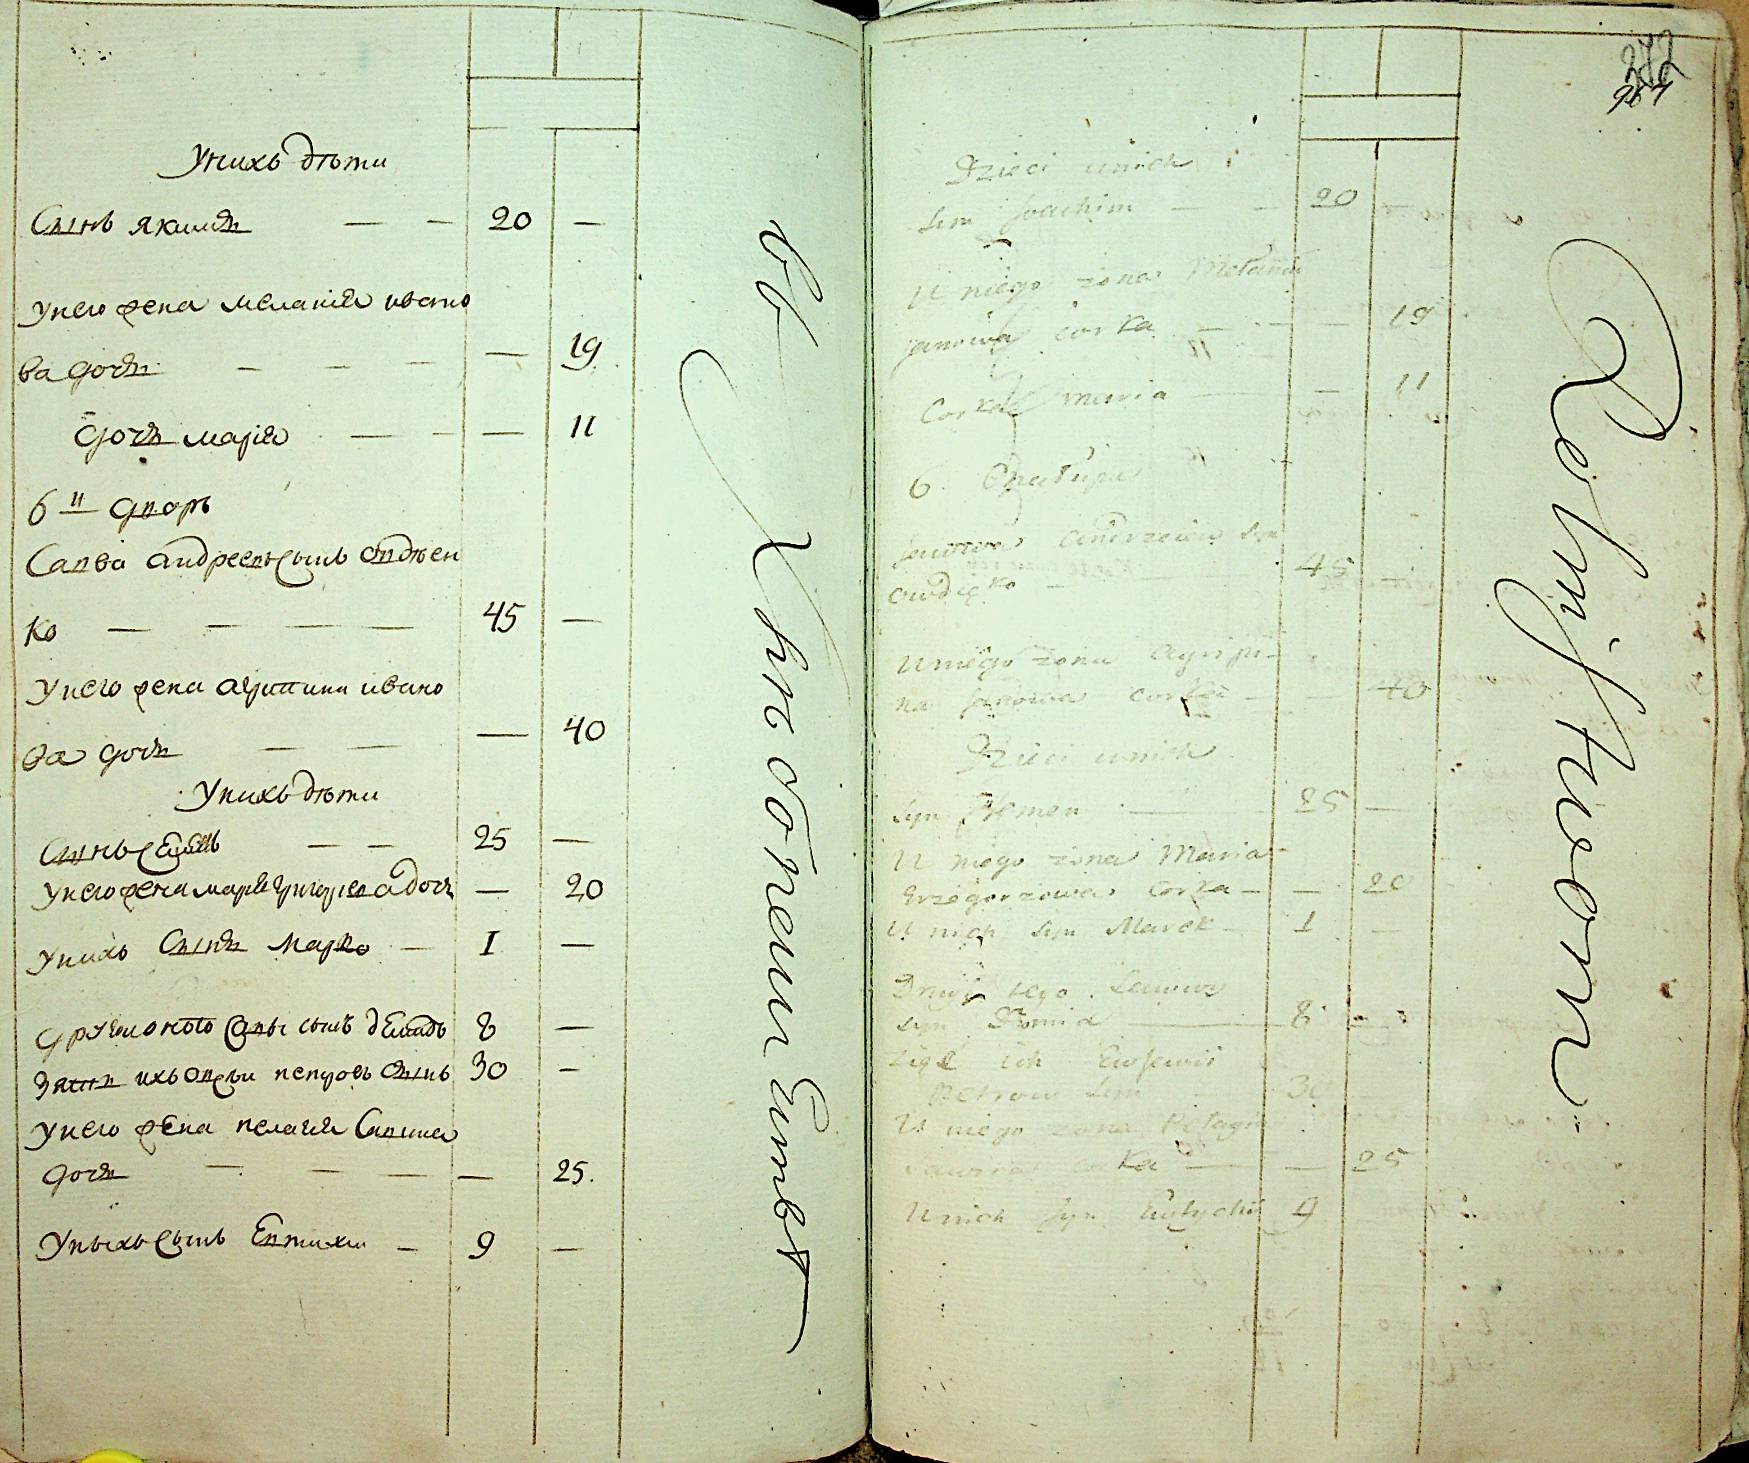 Унихъ дѣти
Сынъ якимъ — — 20 —
унего жена меланія ивано
ва дочь — — — — 19
дочь марія — — — 11
6 й дворъ
Савва андреевъ сынъ овдѣен
ко — — — — 45 —
унего жена агриппина ивано
ва дочь — — — 40
Унихъ дѣти
Сынъ — — 25 —
унего жена марія григорьева дочь — 20
унихъ сынъ марко — 1 —
другій онаго савы сынъ демидъ 8 —
зять ихъ петровъ сынъ 30 —
унего жена пелагия савина
дочь — — — — 25.
унихъ сынъ Евтихи — 9 —
въ
272
Dzieci unich
Syn Joachim — — 20
U niego żona Melania
Janowa corka — — — 19
Corka Maria — — 11
6.
Sawwa Andrzeiew Syn
Owdieko — 45
U niego żona Agripi-
na Janowa corka — — 40
Dzieci unich
Syn Semen — 25 —
U niego żona Maria
Grzegorzowa Corka — — 20
U nich Syn Marek — 1 —
Drugi tego Sawwy
Syn — 8 —
Zięć ich
Petrow Syn — 30
U niego żona Pelagia
corka — — 25
U nich Syn Eutychii 9